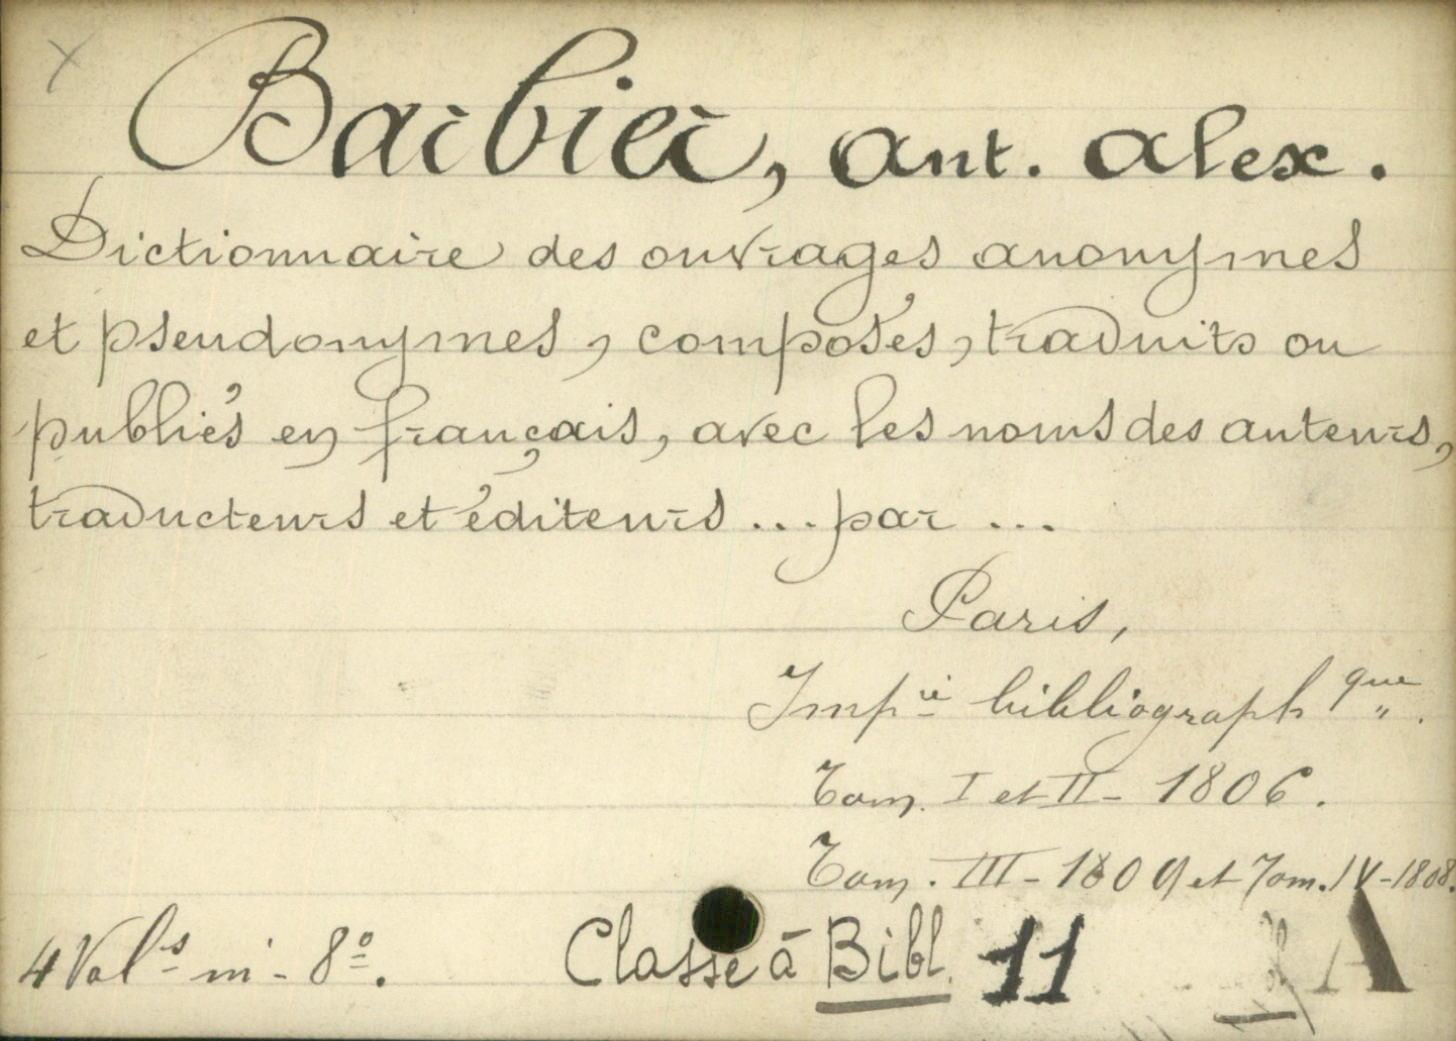 Barbier, Ant. Alex.
Dictionnaire des ouvrages anonymes
et pseudonymes, composés, traduits ou
publiés en français, avec les noms des auteurs,
traducteurs et éditeurs ... par ...
Paris,
Imp^ie bibliograph^que.
Tom. I et II - 1806.
Tom. III - 1809 et Tom. IV - 1808.
4 Vol^s in-8º. Classé à Bibl. 11 A